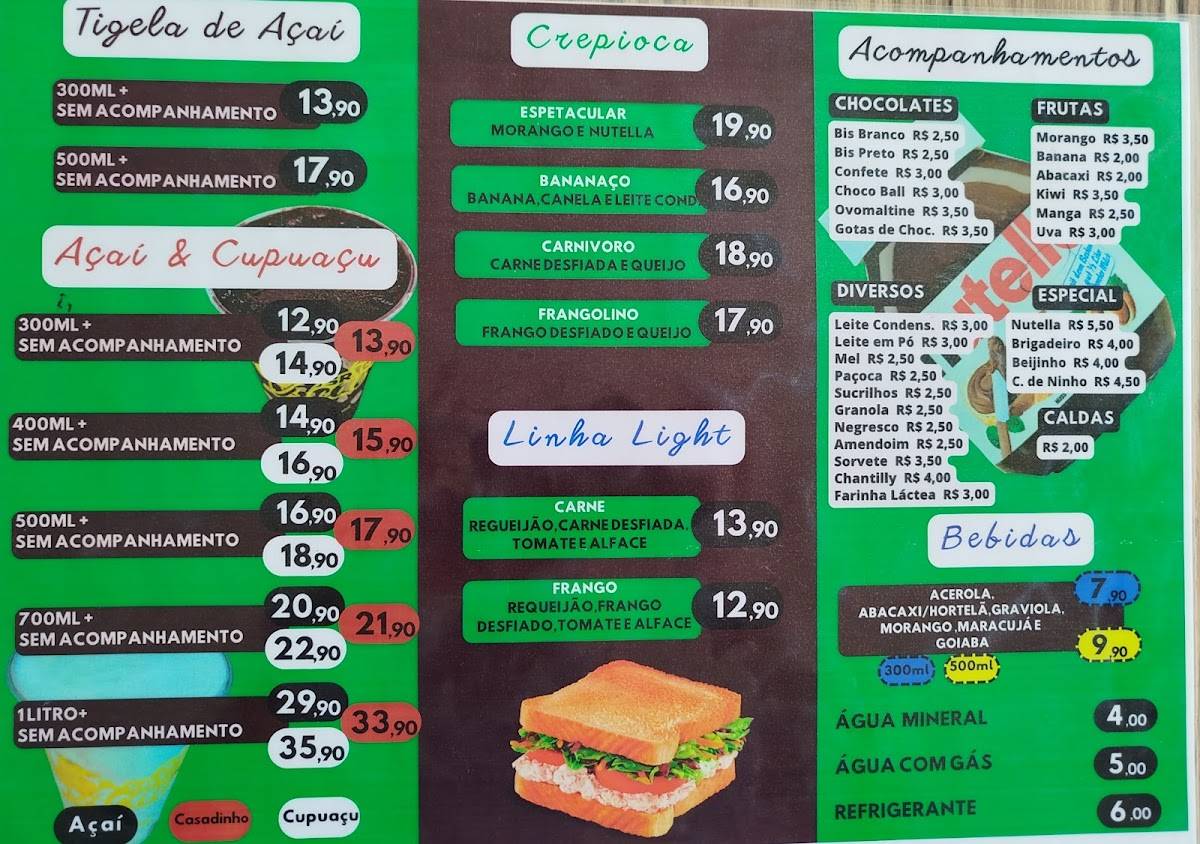 Tigela de Açaí
300ML +
SEM ACOMPANHAMENTO
13,90
500ML +
SEM ACOMPANHAMENTO
17,90
Açaí & Cupuaçu
300ML +
SEM ACOMPANHAMENTO
12,90
13,90
14,90
400ML +
SEM ACOMPANHAMENTO
14,90
15,90
16,90
500ML +
SEM ACOMPANHAMENTO
16,90
17,90
18,90
700ML +
SEM ACOMPANHAMENTO
20,90
21,90
22,90
1 LITRO+
SEM ACOMPANHAMENTO
29,90
33,90
35,90
Açaí
Casadinho
Cupuaçu
Crepioca
ESPETACULAR
MORANGO E NUTELLA
19,90
BANANAÇO
BANANA,CANELA E LEITE COND,
16,90
CARNIVORO
CARNE DESFIADA E QUEIJO
18,90
FRANGOLINO
FRANGO DESFIADO E QUEIJO
17,90
Linha Light
CARNE
REGUEIJÃO,CARNE DESFIADA,
TOMATE E ALFACE
13,90
FRANGO
REQUEIJÃO,FRANGO
DESFIADO,TOMATE E ALFACE
12,90
Acompanhamentos
CHOCOLATES
Bis Branco R$ 2,50
Bis Preto R$ 2,50
Confete R$ 3,00
Choco Ball R$ 3,00
Ovomaltine R$ 3,50
Gotas de Choc. R$ 3,50
FRUTAS
Morango R$ 3,50
Banana R$ 2,00
Abacaxi R$ 2,00
Kiwi R$ 3,50
Manga R$ 2,50
Uva R$ 3,00
DIVERSOS
Leite Condens. R$ 3,00
Leite em Pó R$ 3,00
Mel R$ 2,50
Paçoca R$ 2,50
Sucrilhos R$ 2,50
Granola R$ 2,50
Negresco R$ 2,50
Amendoim R$ 2,50
Sorvete R$ 3,50
Chantilly R$ 4,00
Farinha Láctea R$ 3,00
ESPECIAL
Nutella R$ 5,50
Brigadeiro R$ 4,00
Beijinho R$ 4,00
C. de Ninho R$ 4,50
CALDAS
R$ 2,00
Bebidas
ACEROLA,
ABACAXI/HORTELÃ,GRAVIOLA,
MORANGO,MARACUJÁ E
GOIABA
7,90
9,90
300ml
500ml
ÁGUA MINERAL
4,00
ÁGUA COM GÁS
5,00
REFRIGERANTE
6,00